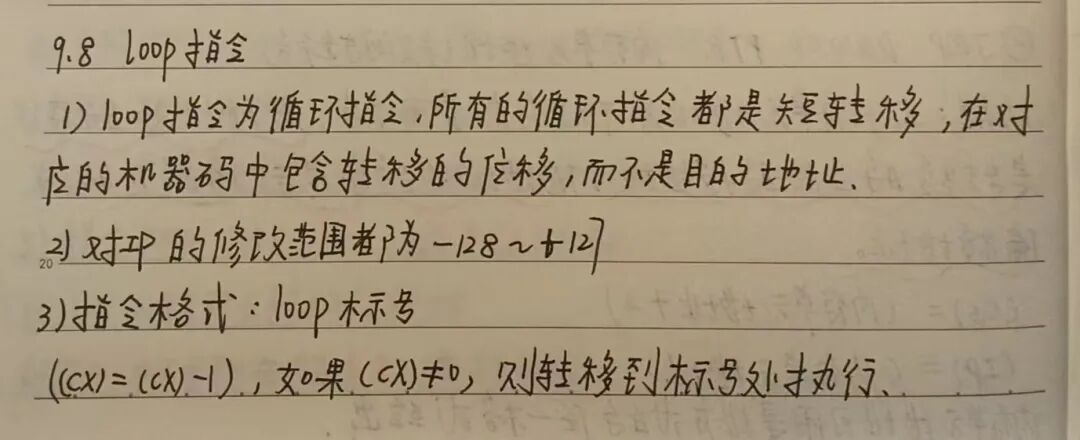 9.8 loop指令
1) loop指令为循环指令,所有的循环指令都是短转移,在对
应的机器码中包含转移的位移,而不是目的地址.
2) 对IP的修改范围都为 -128~+127
20
3)指令格式:loop 标号
((CX)=(CX)-1),如果(CX)≠0,则转移到标号处执行.